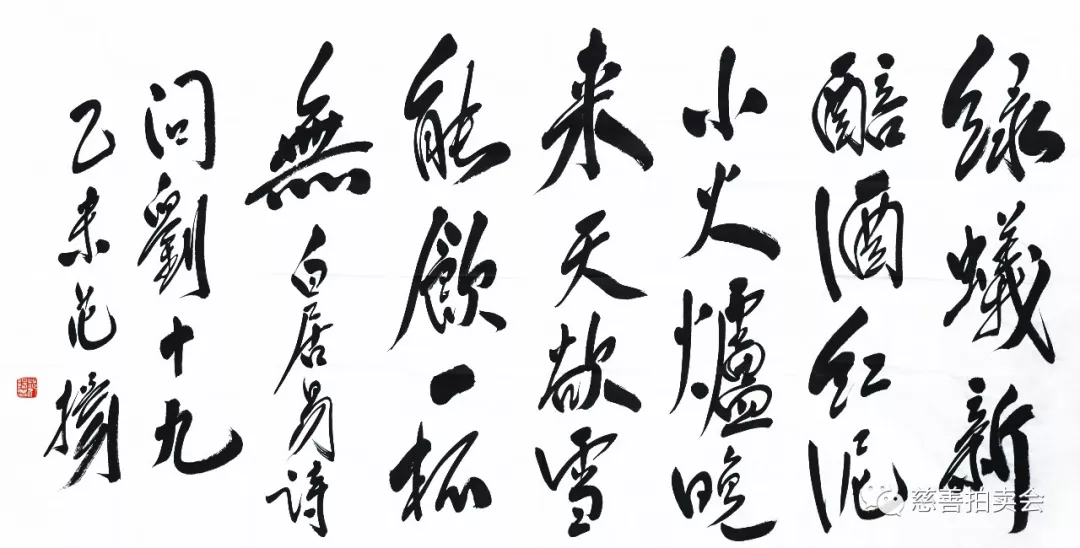 绿蟻新
醅酒红泥
小火爐晚
来天欲雪
能飲一杯
無 白居易詩
问劉十九
乙未范揚
慈善拍卖会